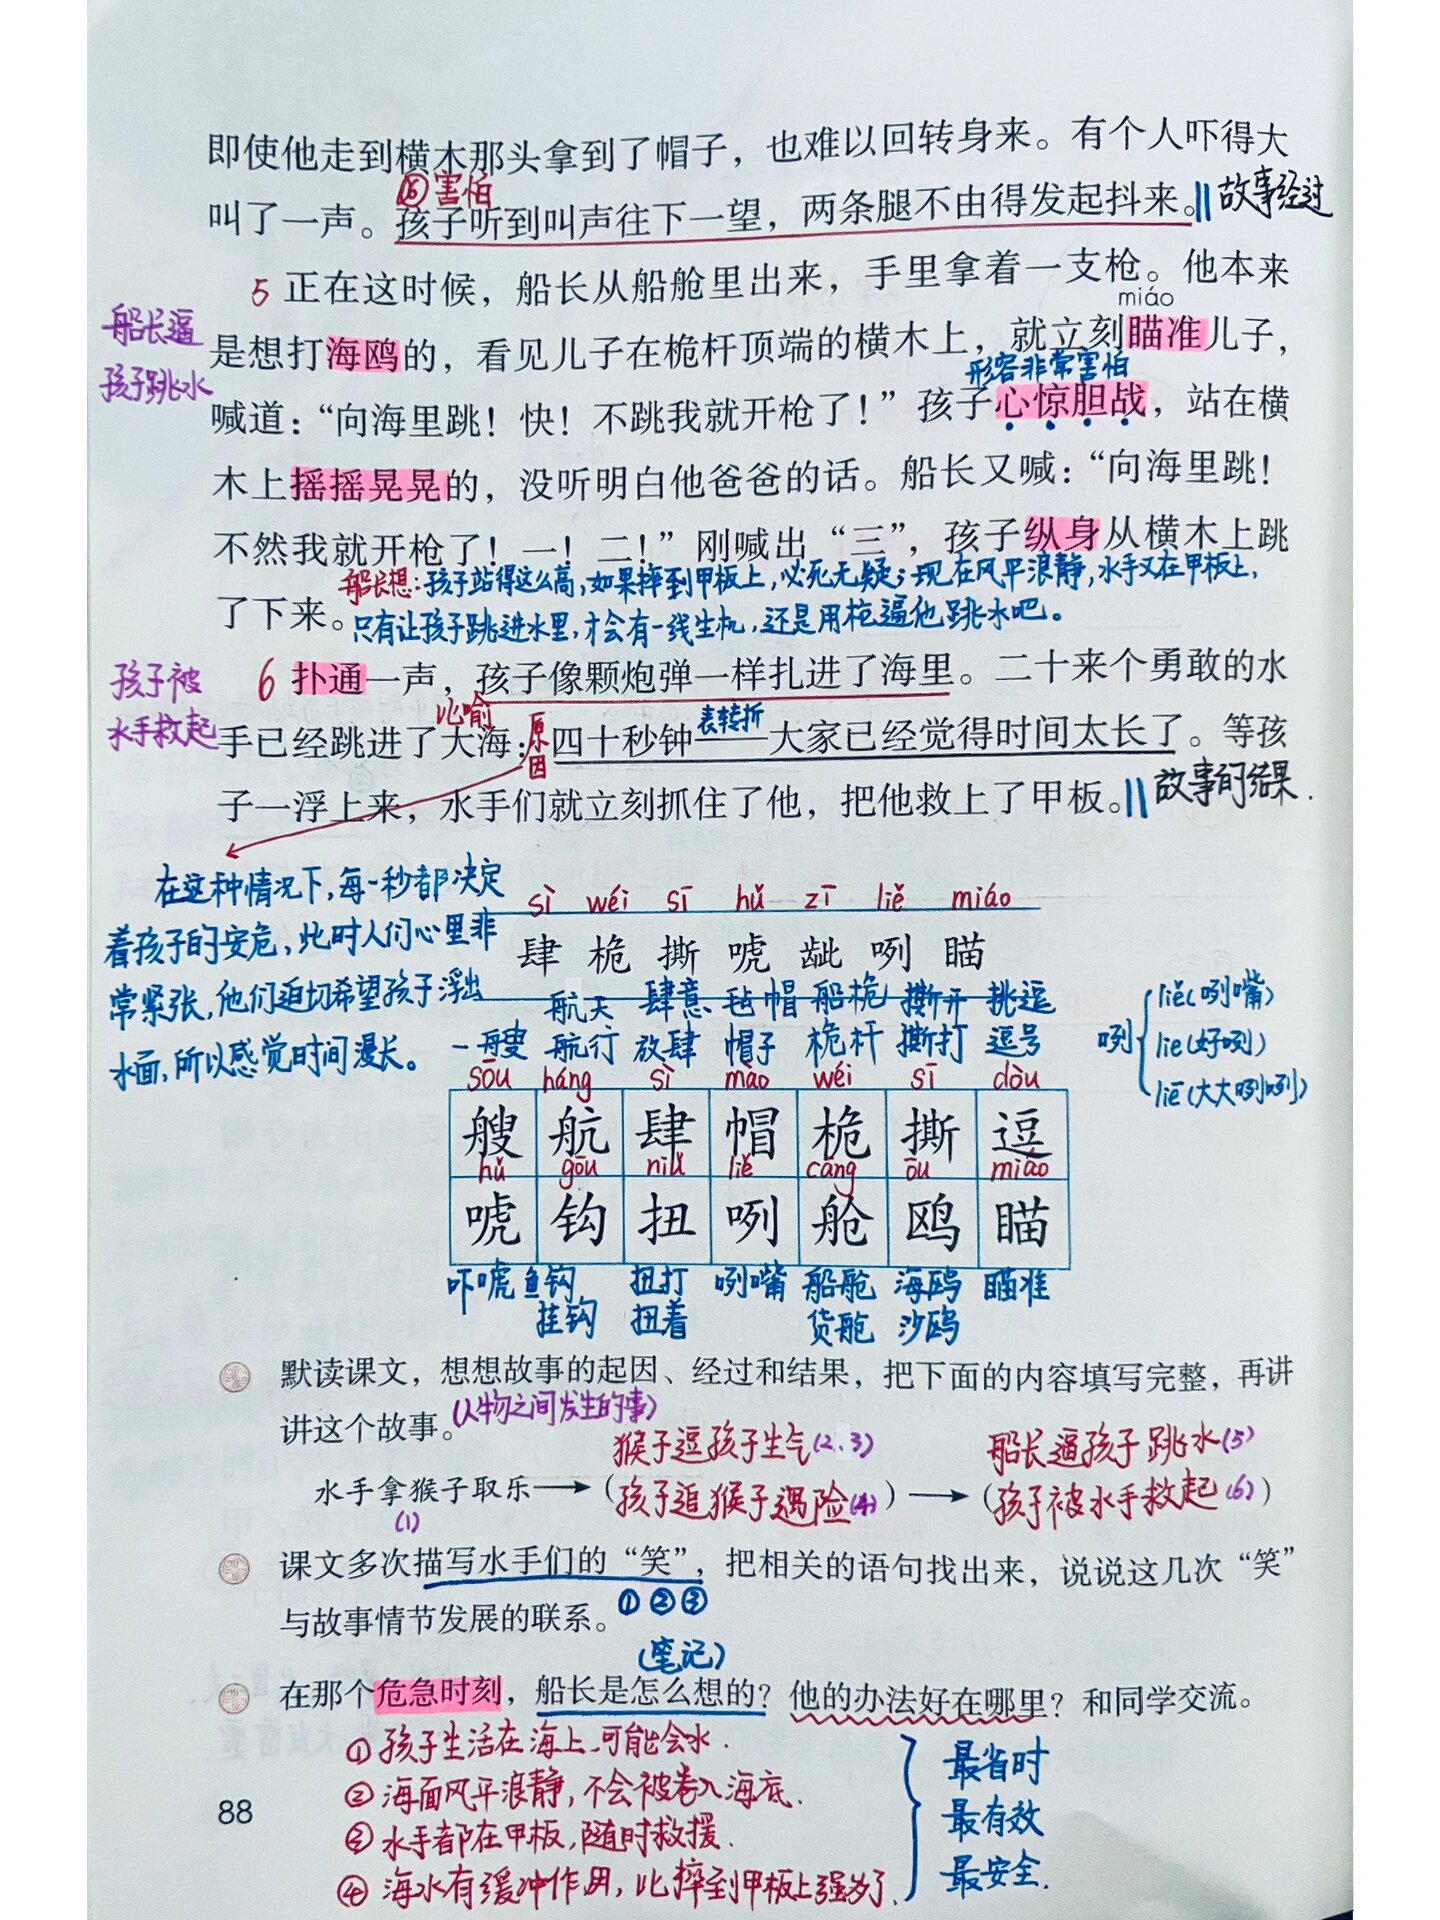 即使他走到横木那头拿到了帽子，也难以回转身来。有个人吓得大
⑥害怕
叫了一声。孩子听到叫声往下一望，两条腿不由得发起抖来。‖故事经过
5 正在这时候，船长从船舱里出来，手里拿着一支枪。他本来
miáo
船长逼
孩子跳水
是想打海鸥的，看见儿子在桅杆顶端的横木上，就立刻瞄准儿子，
形容非常害怕
喊道：“向海里跳！快！不跳我就开枪了！”孩子心惊胆战，站在横
木上摇摇晃晃的，没听明白他爸爸的话。船长又喊：“向海里跳！
不然我就开枪了！一！二！”刚喊出“三”，孩子纵身从横木上跳
了下来。
船长想：孩子站得这么高，如果摔到甲板上，必死无疑；现在风平浪静，水手又在甲板上，
只有让孩子跳进水里，才会有一线生机，还是用枪逼他跳水吧。
孩子被
水手救起
6 扑通一声，孩子像颗炮弹一样扎进了海里。二十来个勇敢的水
比喻 原因 表转折
手已经跳进了大海：四十秒钟——大家已经觉得时间太长了。等孩
子一浮上来，水手们就立刻抓住了他，把他救上了甲板。‖故事的结果.
在这种情况下，每一秒都决定
着孩子的安危，此时人们心里非
常紧张，他们迫切希望孩子浮出
水面，所以感觉时间漫长。
sì wéi sī hǔ zī liě miáo
肆 桅 撕 唬 龇 咧 瞄
航天 肆意 毡帽 船桅 撕开 挑逗
一艘 航行 放肆 帽子 桅杆 撕打 逗号
sōu háng sì mào wéi sī dòu
艘 航 肆 帽 桅 撕 逗
hǔ gōu niǔ liě cāng ōu miáo
唬 钩 扭 咧 舱 鸥 瞄
吓唬 鱼钩 扭打 咧嘴 船舱 海鸥 瞄准
挂钩 扭着 货舱 沙鸥
咧
liě(咧嘴)
lie(好咧)
liē(大大咧咧)
默读课文，想想故事的起因、经过和结果，把下面的内容填写完整，再讲
讲这个故事。(人物之间发生的事)
猴子逗孩子生气(2、3) 船长逼孩子跳水(5)
水手拿猴子取乐→(孩子追猴子遇险(4))→(孩子被水手救起(6))
(1)
课文多次描写水手们的“笑”，把相关的语句找出来，说说这几次“笑”
与故事情节发展的联系。①②③
(笔记)
在那个危急时刻，船长是怎么想的？他的办法好在哪里？和同学交流。
①孩子生活在海上、可能会水.
②海面风平浪静，不会被卷入海底.
③水手都在甲板，随时救援.
④海水有缓冲作用，比摔到甲板上强多了.
最省时
最有效
最安全.
88